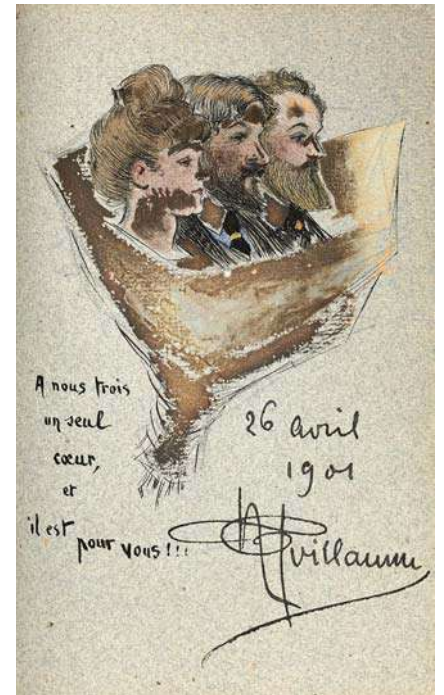 A nous trois
un seul
cœur,
et
il est
pour vous!!!
26 avril
1901
Guillaume